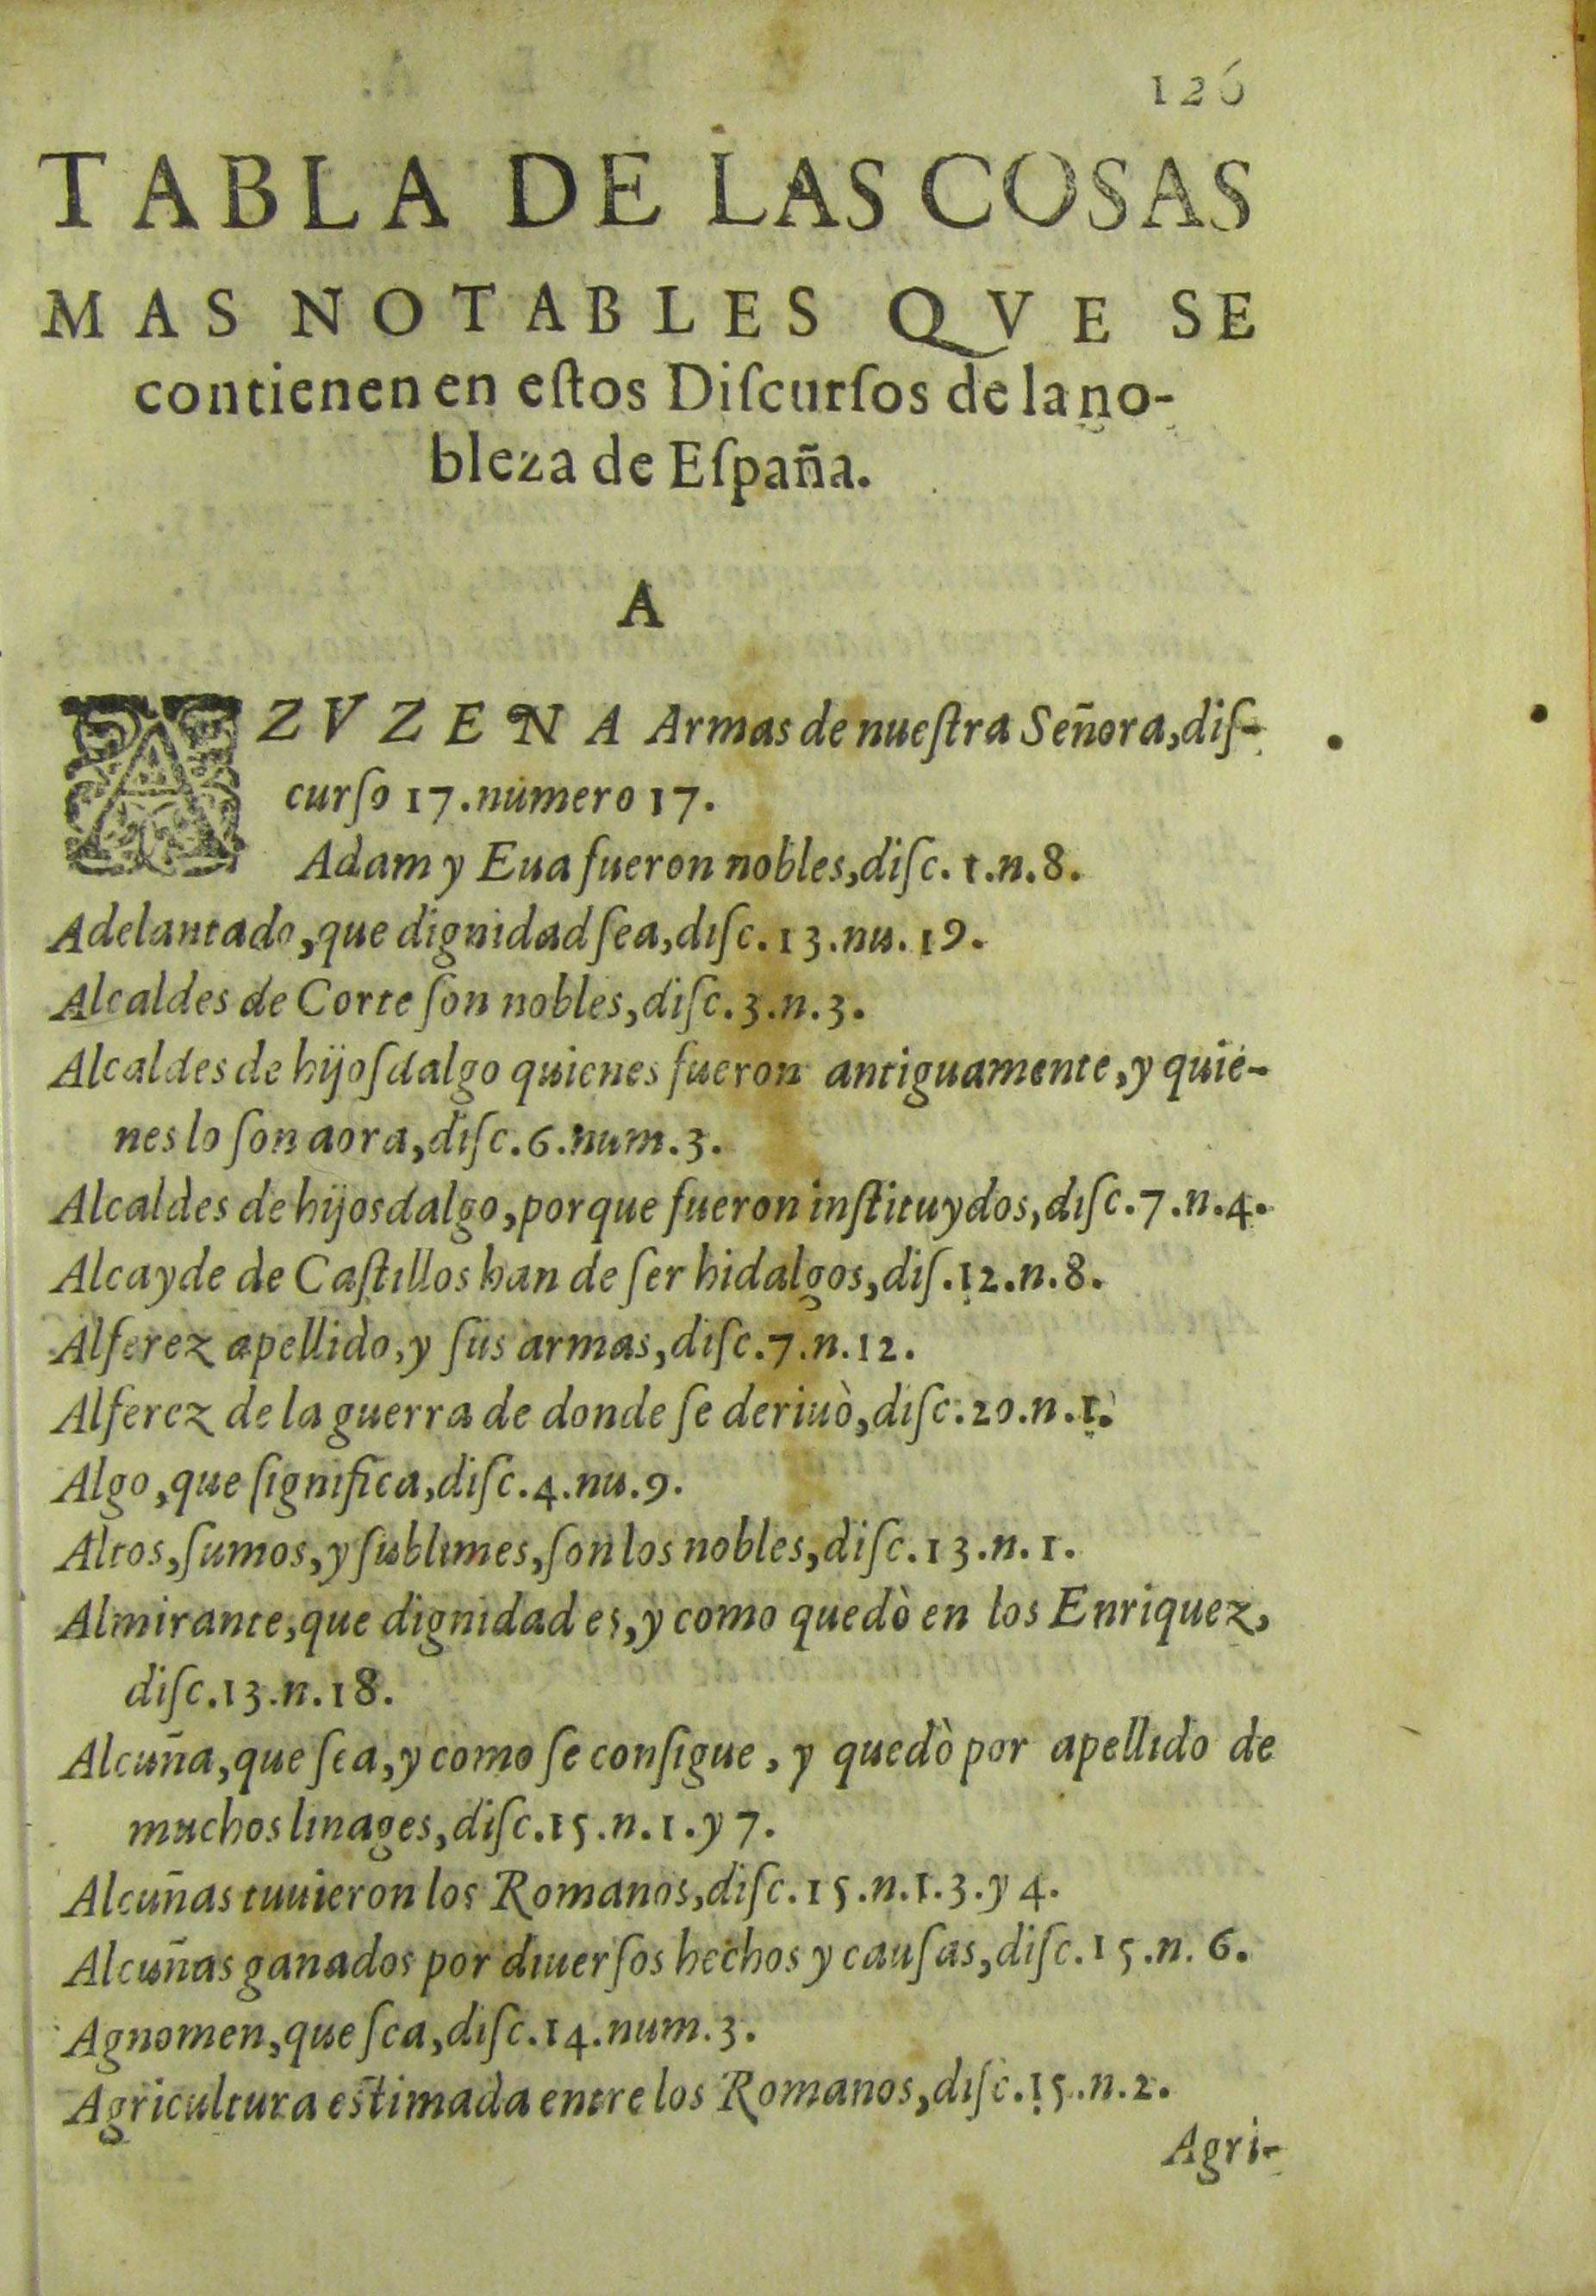 126
TABLA DE LAS COSAS
MAS NOTABLES QVE SE
contienen en eſtos Diſcurſos de la no-
bleza de Eſpaña.
A
AZVZENA Armas de nueſtra Señora, diſ-
curſo 17. numero 17.
Adam y Eua fueron nobles, diſc. 1. n. 8.
Adelantado, que dignidad ſea, diſc. 13. nu. 19.
Alcaldes de Corte ſon nobles, diſc. 3. n. 3.
Alcaldes de hijoſdalgo quienes fueron antiguamente, y quie-
nes lo ſon aora, diſc. 6. num. 3.
Alcaldes de hijosdalgo, porque fueron inſtituydos, diſc. 7. n. 4.
Alcayde de Caſtillos han de ſer hidalgos, diſ. 12. n. 8.
Alferez apellido, y ſus armas, diſc. 7. n. 12.
Alferez de la guerra de donde ſe deriuò, diſc. 20. n. 1.
Algo, que ſignifica, diſc. 4. nu. 9.
Altos, ſumos, y ſublimes, ſon los nobles, diſc. 13. n. 1.
Almirante, que dignidad es, y como quedò en los Enriquez,
diſc. 13. n. 18.
Alcuña, que ſea, y como ſe conſigue, y quedò por apellido de
muchos linages, diſc. 15. n. 1. y 7.
Alcuñas tuuieron los Romanos, diſc. 15. n. 1. 3. y 4.
Alcuñas ganados por diuerſos hechos y cauſas, diſc. 15. n. 6.
Agnomen, que ſea, diſc. 14. num. 3.
Agricultura eſtimada entre los Romanos, diſc. 15. n. 2.
Agri-